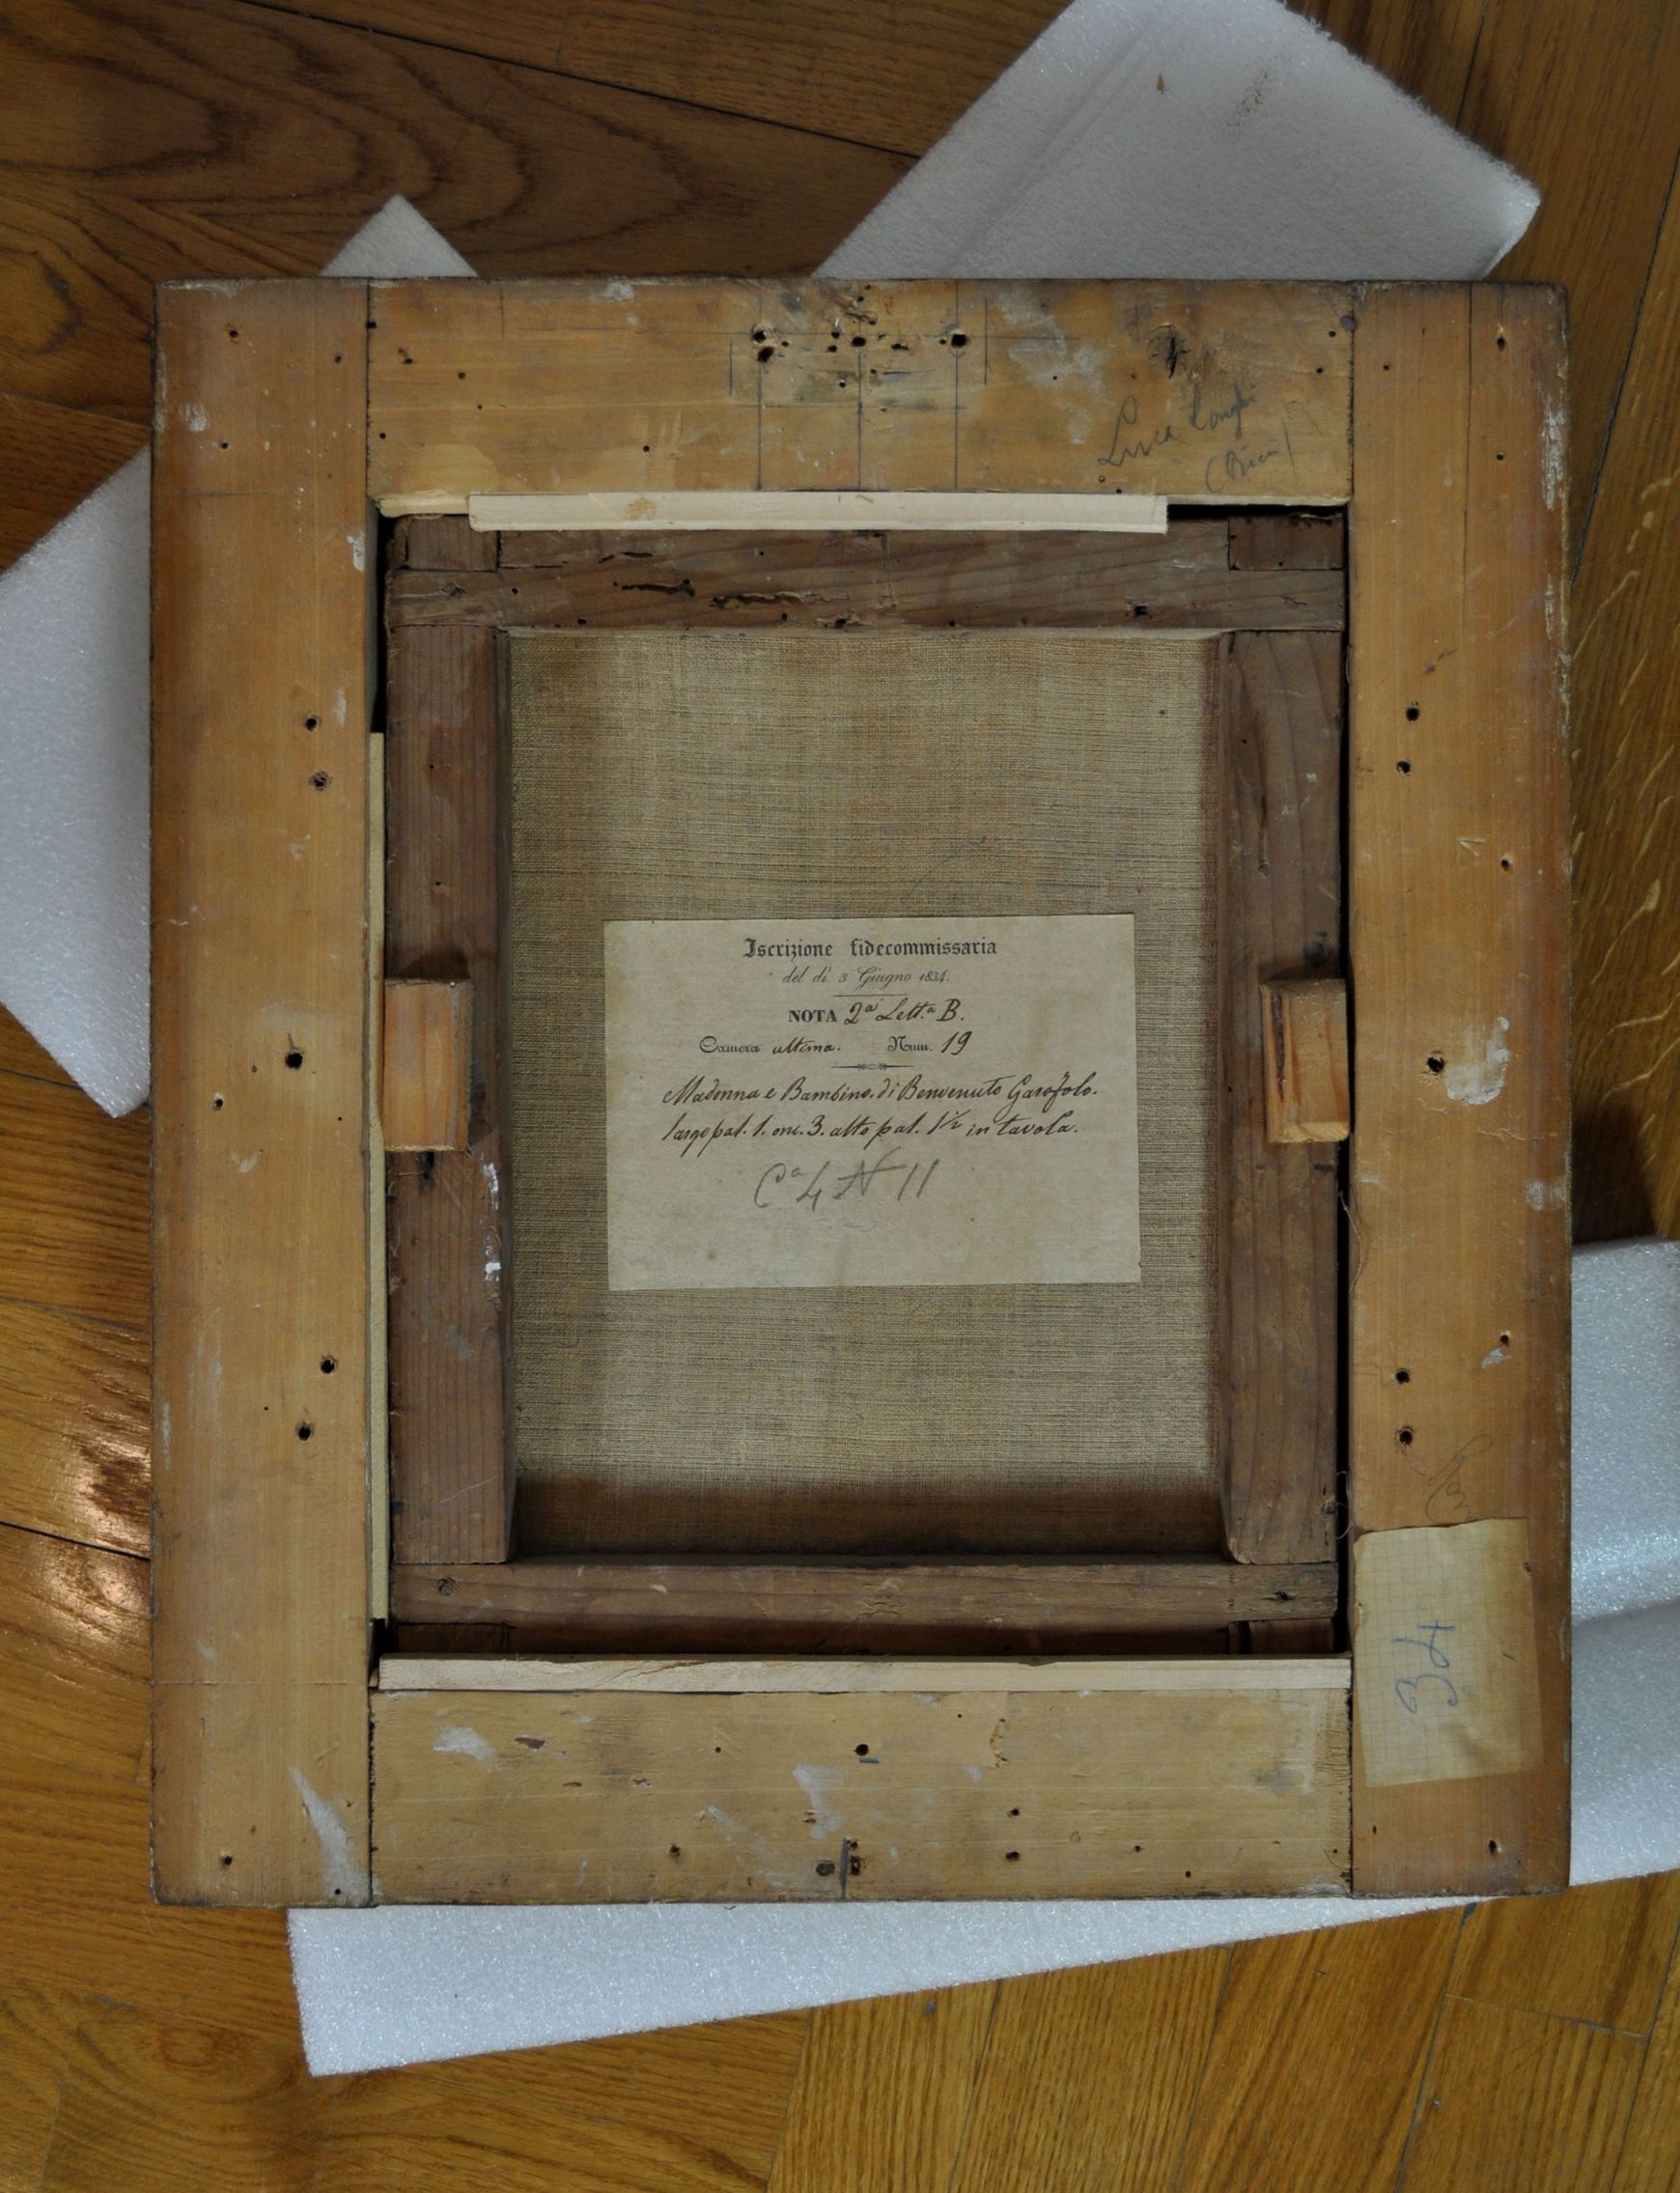 Luca Longhi
(Ricci)
Iscrizione fidecommissaria
del dì 3 Giugno 1834.
NOTA 2ª Lett.ª B.
Camera ultima. Num. 19
Madonna e Bambino. di Benvenuto Garofolo.
largo pal. 1. onc. 3. alto pal. 1½ in tavola.
Cª 4 N 11
34